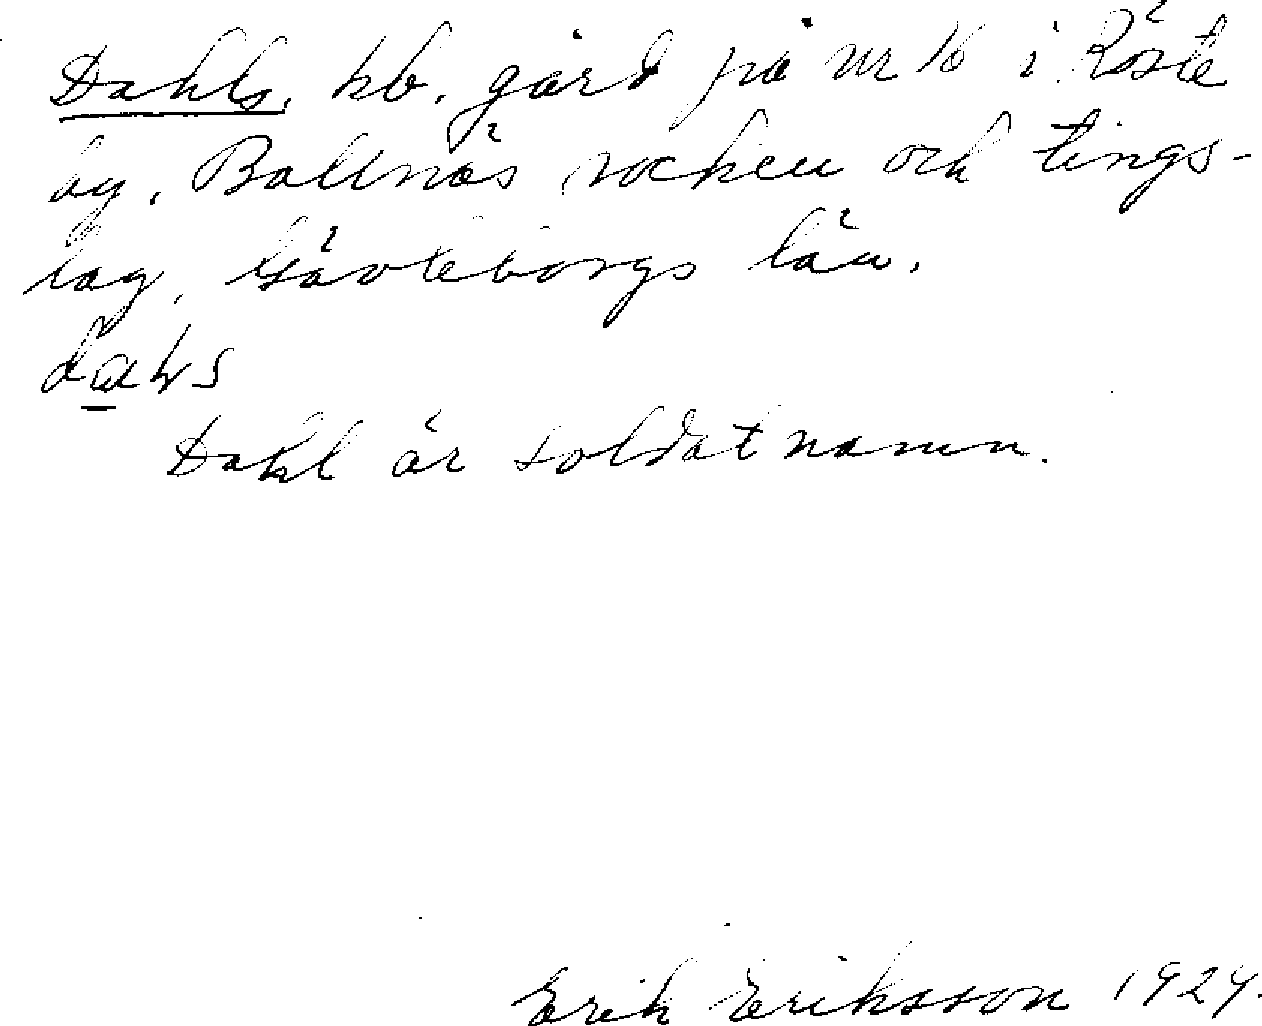 Dahls, hb. gård på nr 16 i Röste
by, Bollnäs socken och tings-
lag, Gävleborgs län.
dahs
Dahl är soldatnamn.
Erik Eriksson 1924.